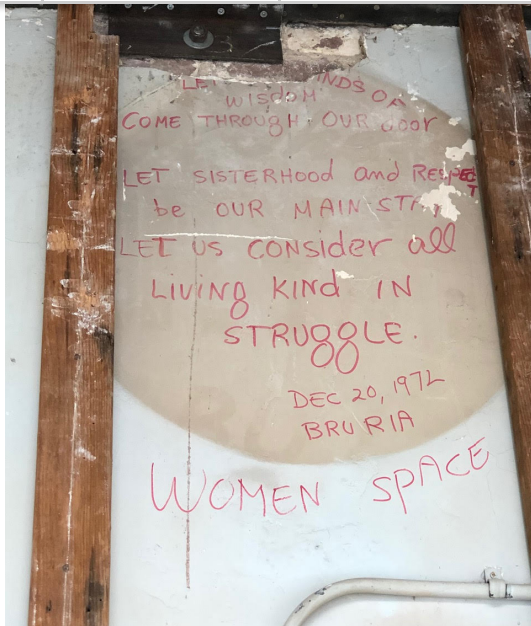 LET NDS OF
WISDOM
COME THROUGH OUR dooR
LET SISTERHOOD and RESPECT
be OUR MAIN STAY
LET US CONSIdeR all
LIVINg KINd IN
STRUggLE.
DEC 20, 1972
BRURIA
WOMEN SPACE